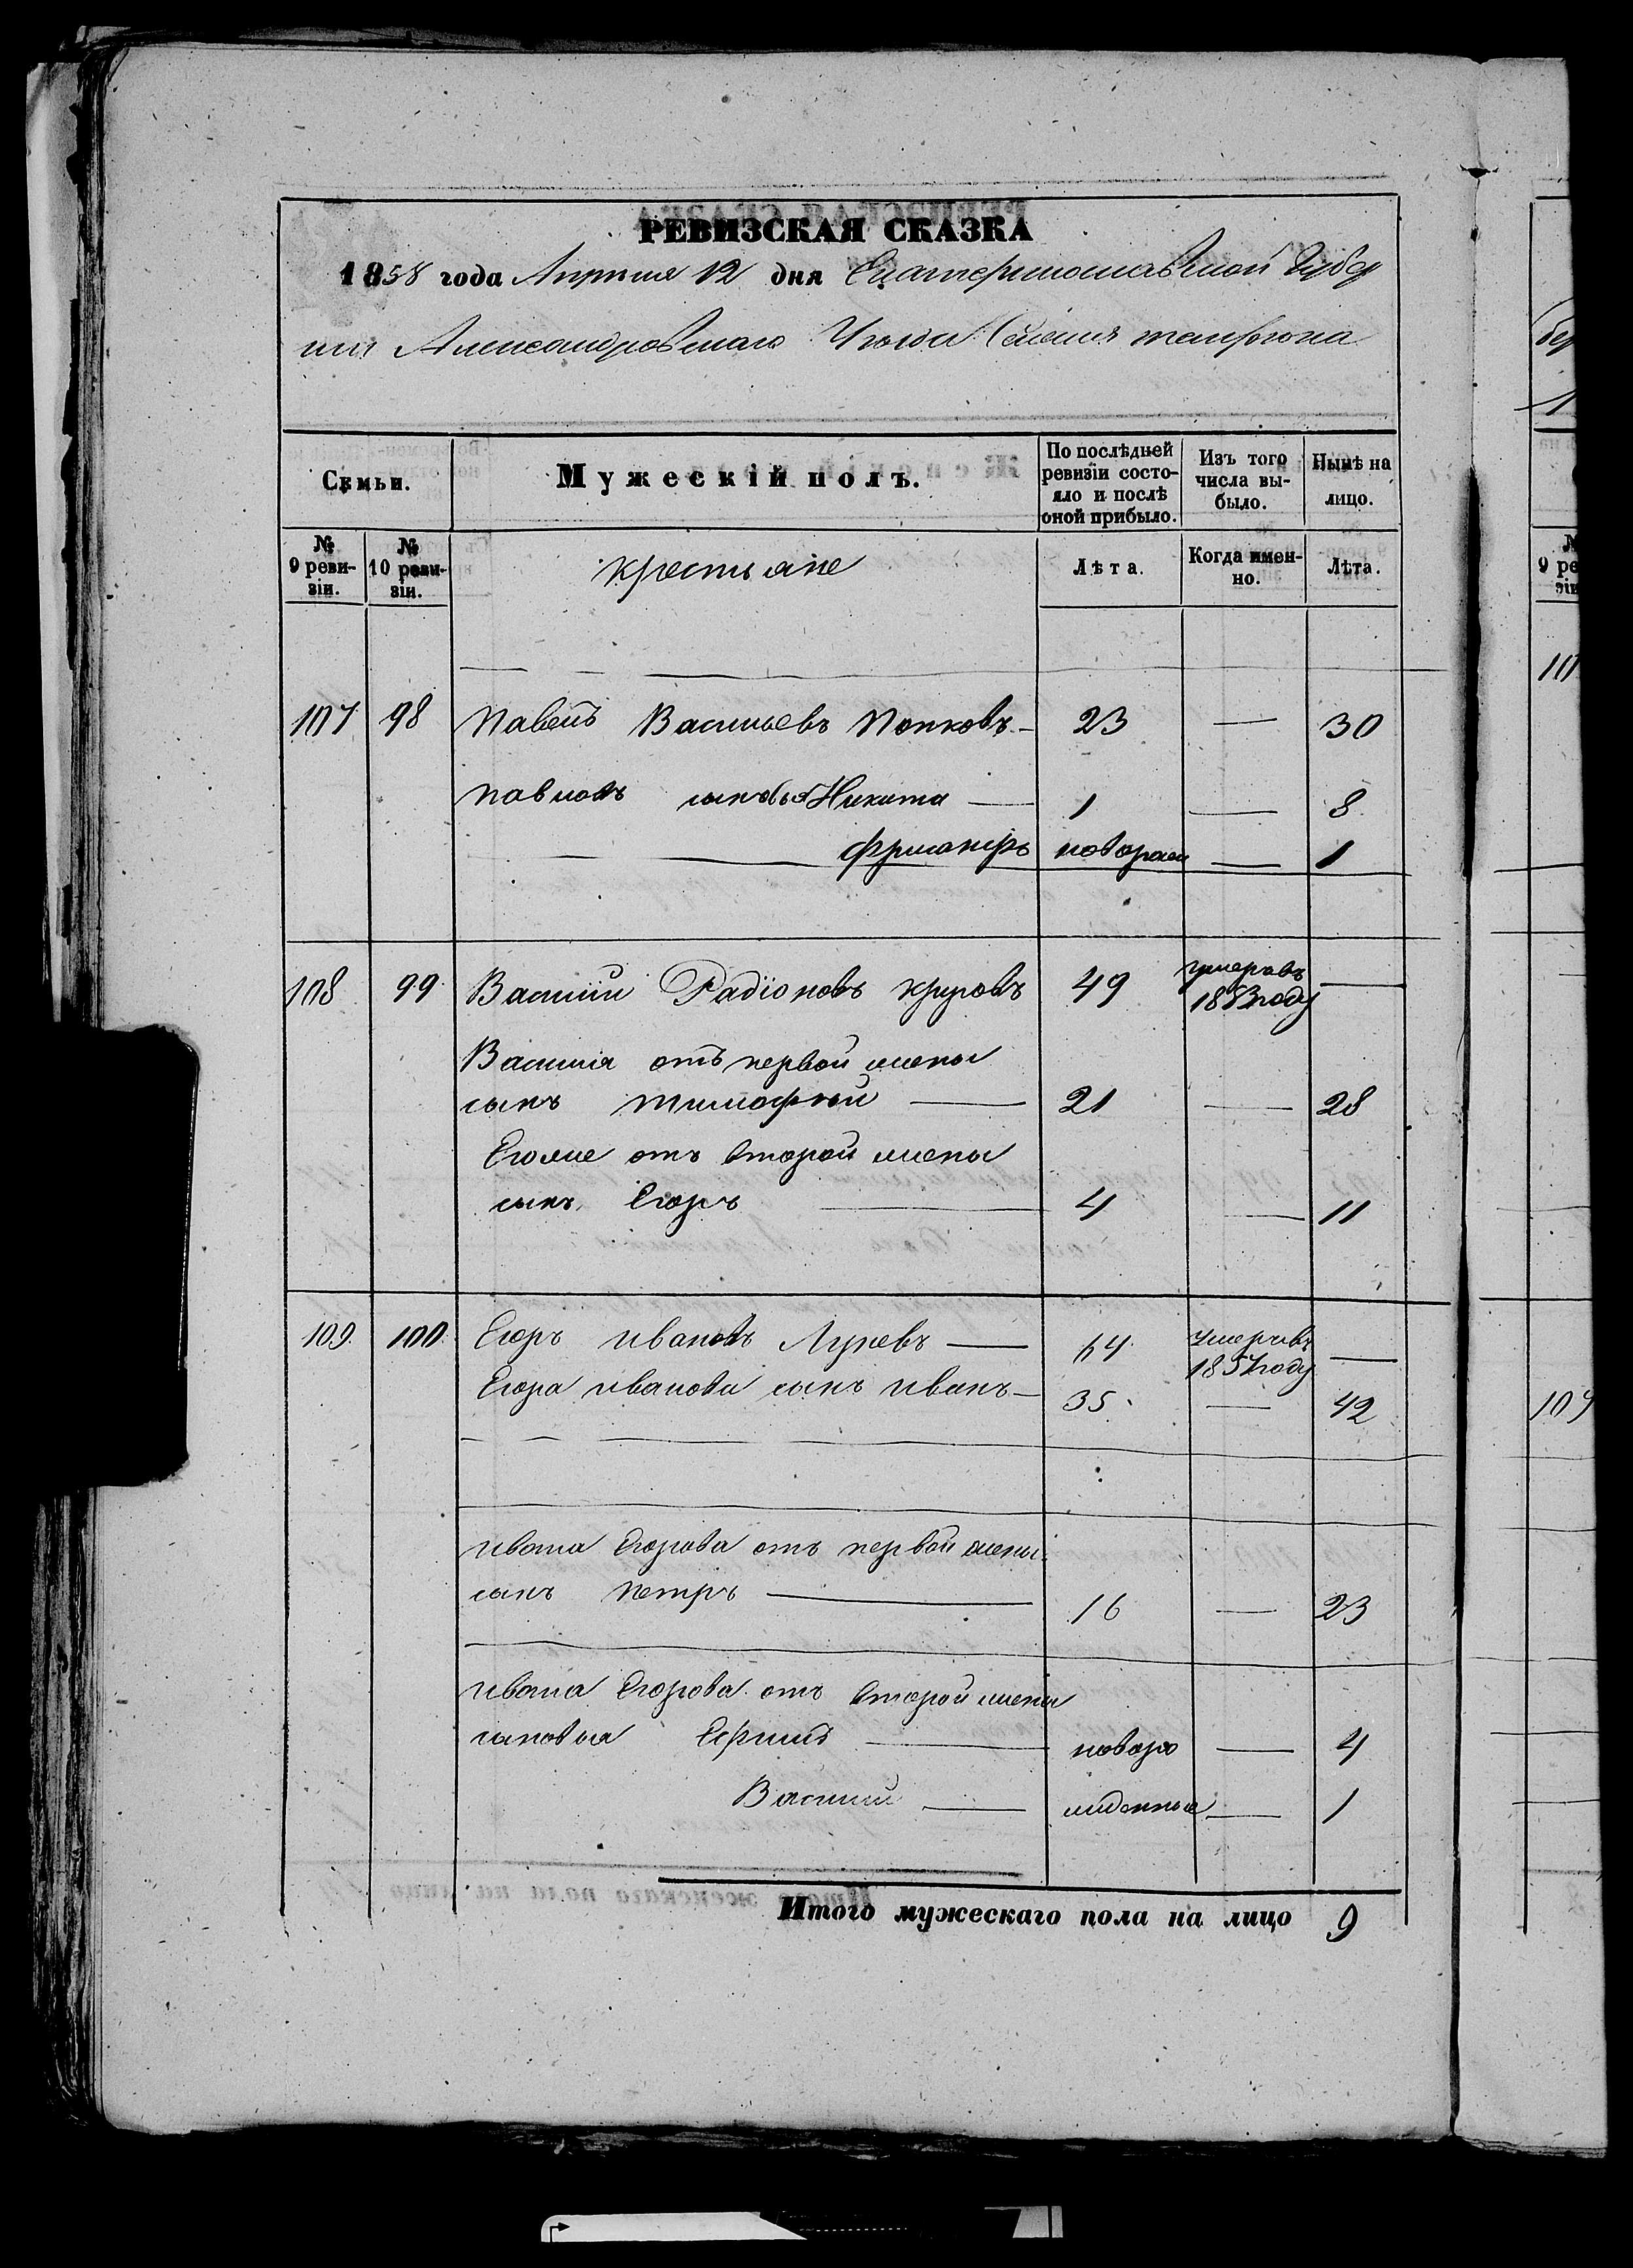 РЕВИЗСКАЯ СКАЗКА
1858 года Апрѣля 12 дня Екатеринославской Губер
нiи Александровскаго Уѣзда Селенiя
Семьи.
Мужескiй полъ.
По послѣдней ревизiи состояло и послѣ оной прибыло.
Изъ того числа выбыло.
Нынѣ на лицо.
№ 9 ревизiи.
№ 10 ревизiи.
Крестьяне
Лѣта.
Когда именно.
Лѣта.
107 98 Павелъ Васильевъ Попковъ 23 — 30
Павловы сыновья Никита — 1 — 8
новорожд — 1
108 99 Василiй Радiоновъ 49 умеръ въ 1853 году —
Василiя отъ первой жены
сынъ Тимофѣй — 21 — 28
Егоже отъ второй жены
сынъ Егоръ — 4 — 11
109 100 Егоръ Ивановъ — 64 умеръ въ 1857 году —
Егора Иванова сынъ Иванъ — 35 — 42
Ивана Егорова отъ первой жены
сынъ Петръ — 16 — 23
Ивана Егорова отъ второй жены
сыновья Ефимъ — новоро — 4
Василiй — жденные — 1
Итого мужескаго пола на лицо 9